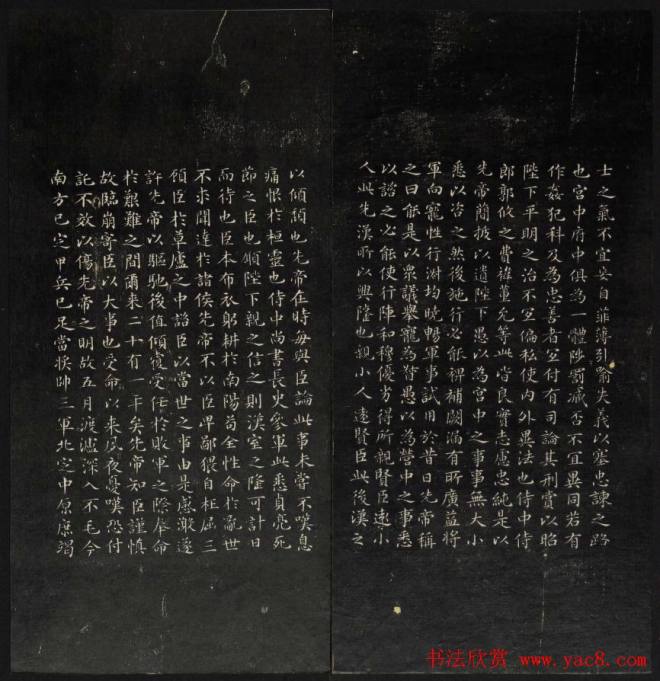 士之氣不宜妄自菲薄引喻失義以塞忠諫之路
也宮中府中俱為一體陟罰臧否不宜異同若有
作姦犯科及為忠善者宜付有司論其刑賞以昭
陛下平明之治不宜偏私使內外異法也侍中侍
郎郭攸之費禕董允等此皆良實志慮忠純是以
先帝簡拔以遺陛下愚以為宮中之事事無大小
悉以咨之然後施行必能裨補闕漏有所廣益將
軍向寵性行淑均曉暢軍事試用於昔日先帝稱
之曰能是以眾議舉寵為督愚以為營中之事悉
以諮之必能使行陣和穆優劣得所親賢臣遠小
人此先漢所以興隆也親小人遠賢臣此後漢之
以傾頹也先帝在時每與臣論此事未嘗不嘆息
痛恨於桓靈也侍中尚書長史參軍此悉貞亮死
節之臣也願陛下親之信之則漢室之隆可計日
而待也臣本布衣躬耕於南陽苟全性命於亂世
不求聞達於諸侯先帝不以臣卑鄙猥自枉屈三
顧臣於草廬之中諮臣以當世之事由是感激遂
許先帝以驅馳後值傾覆受任於敗軍之際奉命
於艱難之間爾來二十有一年矣先帝知臣謹慎
故臨崩寄臣以大事也受命以來夙夜憂嘆恐付
託不效以傷先帝之明故五月渡瀘深入不毛今
南方已定甲兵已足當獎帥三軍北定中原庶竭
书法欣赏 www.yac8.com